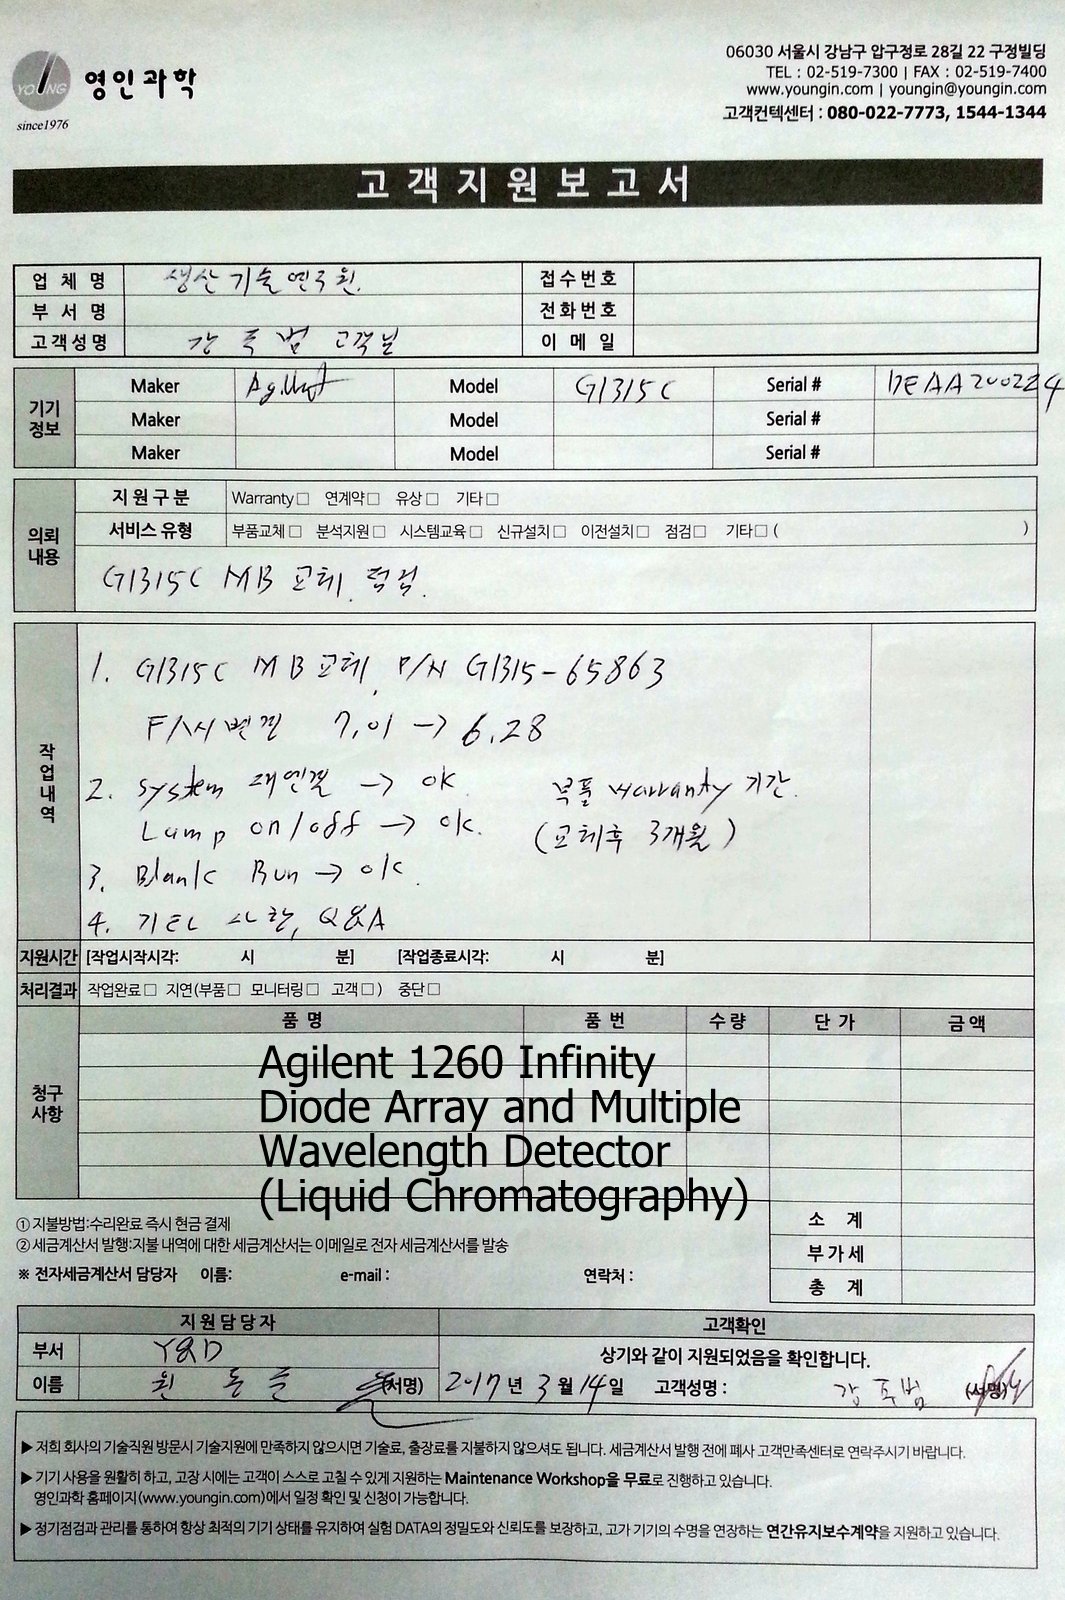 YOUNG
영인과학
since1976
06030 서울시 강남구 압구정로 28길 22 구정빌딩
TEL : 02-519-7300 | FAX : 02-519-7400
www.youngin.com | youngin@youngin.com
고객컨텍센터 : 080-022-7773, 1544-1344
고객지원보고서
업 체 명 생산기술연구원. 접수번호
부 서 명 전화번호
고객성명 강 고객님 이 메 일
기기정보
Maker Agilent Model G1315C Serial # DEAA200224
Maker Model Serial #
Maker Model Serial #
의뢰내용
지원구분 Warranty□ 연계약□ 유상□ 기타□
서비스 유형 부품교체□ 분석지원□ 시스템교육□ 신규설치□ 이전설치□ 점검□ 기타□( )
G1315C MB 교체, 점검.
작업내역
1. G1315C MB 교체, P/N G1315-65863
F/W 변환 7.01 → 6.28
2. System 재연결 → ok. 부품 warranty 기간.
Lamp on/off → ok. (교체후 3개월)
3. Blank Run → ok.
4. 기타 사항, Q&A
지원시간 [작업시작시각: 시 분] [작업종료시각: 시 분]
처리결과 작업완료□ 지연(부품□ 모니터링□ 고객□) 중단□
청구사항
품 명 품 번 수량 단 가 금액
Agilent 1260 Infinity
Diode Array and Multiple
Wavelength Detector
(Liquid Chromatography)
① 지불방법:수리완료 즉시 현금 결제
② 세금계산서 발행:지불 내역에 대한 세금계산서는 이메일로 전자 세금계산서를 발송
※ 전자세금계산서 담당자 이름: e-mail : 연락처 :
소 계
부가세
총 계
지원담당자 고객확인
부서 Y&D
상기와 같이 지원되었음을 확인합니다.
이름 (서명) 2017년 3월 14일 고객성명 : 강 (서명)
▶ 저희 회사의 기술직원 방문시 기술지원에 만족하지 않으시면 기술료, 출장료를 지불하지 않으셔도 됩니다. 세금계산서 발행 전에 폐사 고객만족센터로 연락주시기 바랍니다.
▶ 기기 사용을 원활히 하고, 고장 시에는 고객이 스스로 고칠 수 있게 지원하는 Maintenance Workshop을 무료로 진행하고 있습니다.
영인과학 홈페이지(www.youngin.com)에서 일정 확인 및 신청이 가능합니다.
▶ 정기점검과 관리를 통하여 항상 최적의 기기 상태를 유지하여 실험 DATA의 정밀도와 신뢰도를 보장하고, 고가 기기의 수명을 연장하는 연간유지보수계약을 지원하고 있습니다.